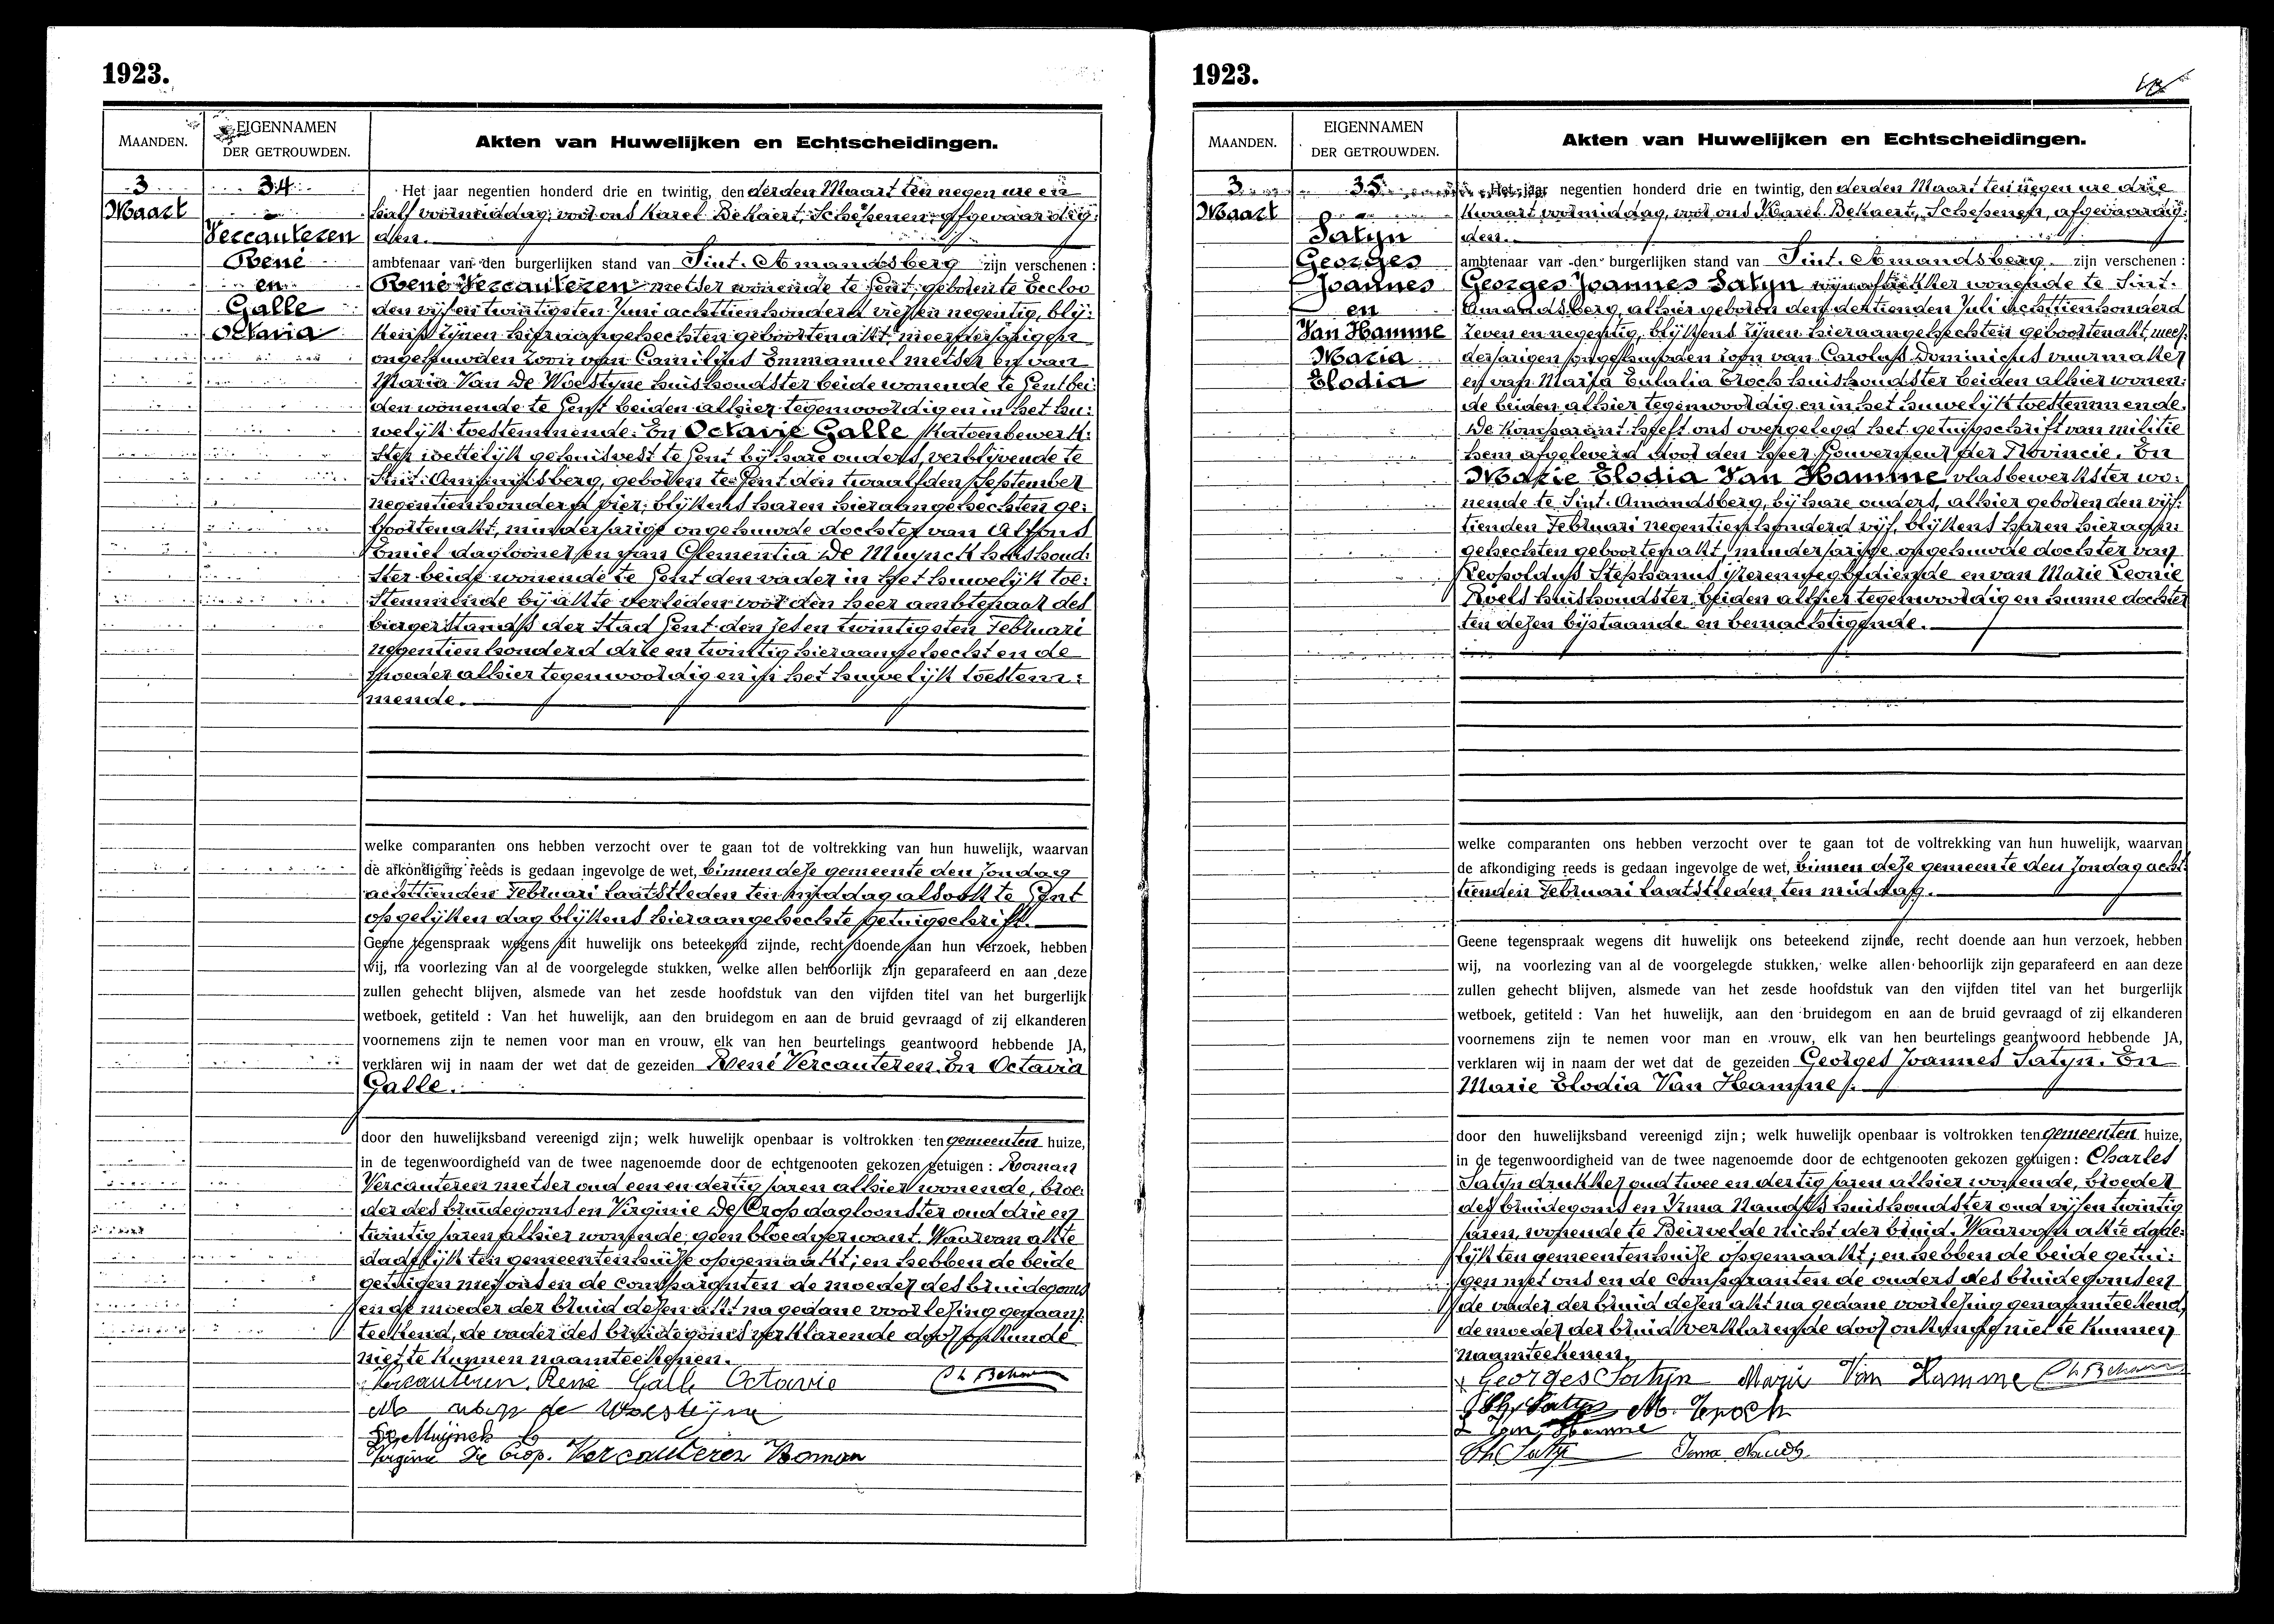 1923.
MAANDEN.
EIGENNAMEN
DER GETROUWDEN.
Akten van Huwelijken en Echtscheidingen.
3
Maart
34
Vercauteren
René
en
Galle
Octavia
Het jaar negentien honderd drie en twintig, den derden Maart ten negen ure en
half voormiddag, voor ons Karel Bekaert, Schepenen, afgevaardig:
den.
ambtenaar van den burgerlijken stand van Sint-Amandsberg zijn verschenen :
René Vercauteren metser wonende te Gent, geboren te Eecloo
den vijf en twintigsten Juni achttienhonderd vier en negentig, blij:
kens zijnen hieraangehechten geboortenakt, meerderjarigen
ongehuwden zoon van Camilius Emmanuel metser en van
Maria Van De Woestyne huishoudster beide wonende te Gent bei:
den wonende te Gent beiden alhier tegenwoordig en in het hu:
welijk toestemmende. En Octavie Galle katoenbewerk:
ster wettelijk gehuisvest te Gent bij hare ouders, verblijvende te
Sint-Amandsberg, geboren te Gent den twaalfden September
negentienhonderd vier, blijkens haren hieraangehechten ge:
boortenakt, minderjarige ongehuwde dochter van Alfons
Emiel daglooner en van Clementia De Muynck huishoud:
ster beide wonende te Gent den vader in het huwelijk toe:
stemmende bij akte verleden voor den heer ambtenaar des
burgerstands der Stad Gent den zes en twintigsten Februari
negentienhonderd drie en twintig hieraangehecht en de
moeder alhier tegenwoordig en in het huwelijk toestem:
mende.
welke comparanten ons hebben verzocht over te gaan tot de voltrekking van hun huwelijk, waarvan
de afkondiging reeds is gedaan ingevolge de wet, binnen deze gemeente den Zondag
achttienden Februari laatstleden ten middag alsook te Gent
op gelijken dag blijkens hieraangehechte getuigschrift.
Geene tegenspraak wegens dit huwelijk ons beteekend zijnde, recht doende aan hun verzoek, hebben
wij, na voorlezing van al de voorgelegde stukken, welke allen behoorlijk zijn geparafeerd en aan deze
zullen gehecht blijven, alsmede van het zesde hoofdstuk van den vijfden titel van het burgerlijk
wetboek, getiteld : Van het huwelijk, aan den bruidegom en aan de bruid gevraagd of zij elkanderen
voornemens zijn te nemen voor man en vrouw, elk van hen beurtelings geantwoord hebbende JA,
verklaren wij in naam der wet dat de gezeiden René Vercauteren. En Octavia
Galle.
door den huwelijksband vereenigd zijn; welk huwelijk openbaar is voltrokken ten gemeenten huize,
in de tegenwoordigheid van de twee nagenoemde door de echtgenooten gekozen getuigen : Roman
Vercauteren metser oud een en dertig jaren alhier wonende, broe:
der des bruidegoms en Virginie De Crop dagloonster oud drie en
twintig jaren alhier wonende, geen bloedverwant. Waarvan akte
dadelijk ten gemeentenhuize opgemaakt; en hebben de beide
getuigen met ons en de comparanten de moeder des bruidegoms
en de moeder der bruid dezen akt na gedane voorlezing genaam:
teekend, de vader des bruidegoms verklarende door onkunde
niet te kunnen naamteekenen.
Vercauteren. René Galle Octavie Ch Bekaert
M van de Woestijne
De Muijnck
Virginie De Crop. Vercauteren Roman
1923.
MAANDEN.
EIGENNAMEN
DER GETROUWDEN.
Akten van Huwelijken en Echtscheidingen.
3
Maart
35
Satyn
Georges
Joannes
en
Van Hamme
Maria
Elodia
Het jaar negentien honderd drie en twintig, den derden Maart ten negen ure drie
kwaart voormiddag, voor ons Karel Bekaert, Schepenen, afgevaardig:
den.
ambtenaar van den burgerlijken stand van Sint-Amandsberg zijn verschenen :
Georges Joannes Satyn wonende te Sint-
Amandsberg, alhier geboren den dertienden Juli achttienhonderd
zeven en negentig, blijkens zijnen hieraangehechten geboortenakt, meer:
derjarigen ongehuwden zoon van Carolus Dominicus vuurmaker
en van Maria Eulalia Eroch huishoudster beiden alhier wonen:
de beiden alhier tegenwoordig en in het huwelijk toestemmende.
De Komparant heeft ons overgelegd het getuigschrift van militie
hem afgeleverd door den heer Gouverneur der Provincie. En
Marie Elodia Van Hamme vlasbewerkster wo:
nende te Sint-Amandsberg, bij hare ouders, alhier geboren den vijf:
tienden Februari negentienhonderd vijf, blijkens haren hieraan:
gehechten geboortenakt, minderjarige ongehuwde dochter van
Leopoldus Stephanus ijzerenwegbediende en van Marie Leonie
Roels huishoudster beiden alhier tegenwoordig en hunne dochter
ten dezen bijstaande en bemachtigende.
welke comparanten ons hebben verzocht over te gaan tot de voltrekking van hun huwelijk, waarvan
de afkondiging reeds is gedaan ingevolge de wet, binnen deze gemeente den Zondag acht:
tienden Februari laatstleden ten middag.
Geene tegenspraak wegens dit huwelijk ons beteekend zijnde, recht doende aan hun verzoek, hebben
wij, na voorlezing van al de voorgelegde stukken, welke allen behoorlijk zijn geparafeerd en aan deze
zullen gehecht blijven, alsmede van het zesde hoofdstuk van den vijfden titel van het burgerlijk
wetboek, getiteld : Van het huwelijk, aan den bruidegom en aan de bruid gevraagd of zij elkanderen
voornemens zijn te nemen voor man en vrouw, elk van hen beurtelings geantwoord hebbende JA,
verklaren wij in naam der wet dat de gezeiden Georges Joannes Satyn. En
Marie Elodia Van Hamme.
door den huwelijksband vereenigd zijn; welk huwelijk openbaar is voltrokken ten gemeenten huize,
in de tegenwoordigheid van de twee nagenoemde door de echtgenooten gekozen getuigen : Charles
Satyn drukker oud twee en dertig jaren alhier wonende, broeder
des bruidegoms en Irma Naudts huishoudster oud vijf en twintig
jaren, wonende te Beirvelde nicht der bruid. Waarvan akte dade:
lijk ten gemeentenhuize opgemaakt; en hebben de beide getui:
gen met ons en de comparanten de ouders des bruidegoms en
de vader der bruid dezen akt na gedane voorlezing genaamteekend,
de moeder der bruid verklarende door onkunde niet te kunnen
naamteekenen.
Georges Satijn Marie Van Hamme Ch Bekaert
Ch. Satyn M. Eroch
L Van Hamme
Ch Satyn Irma Naudts